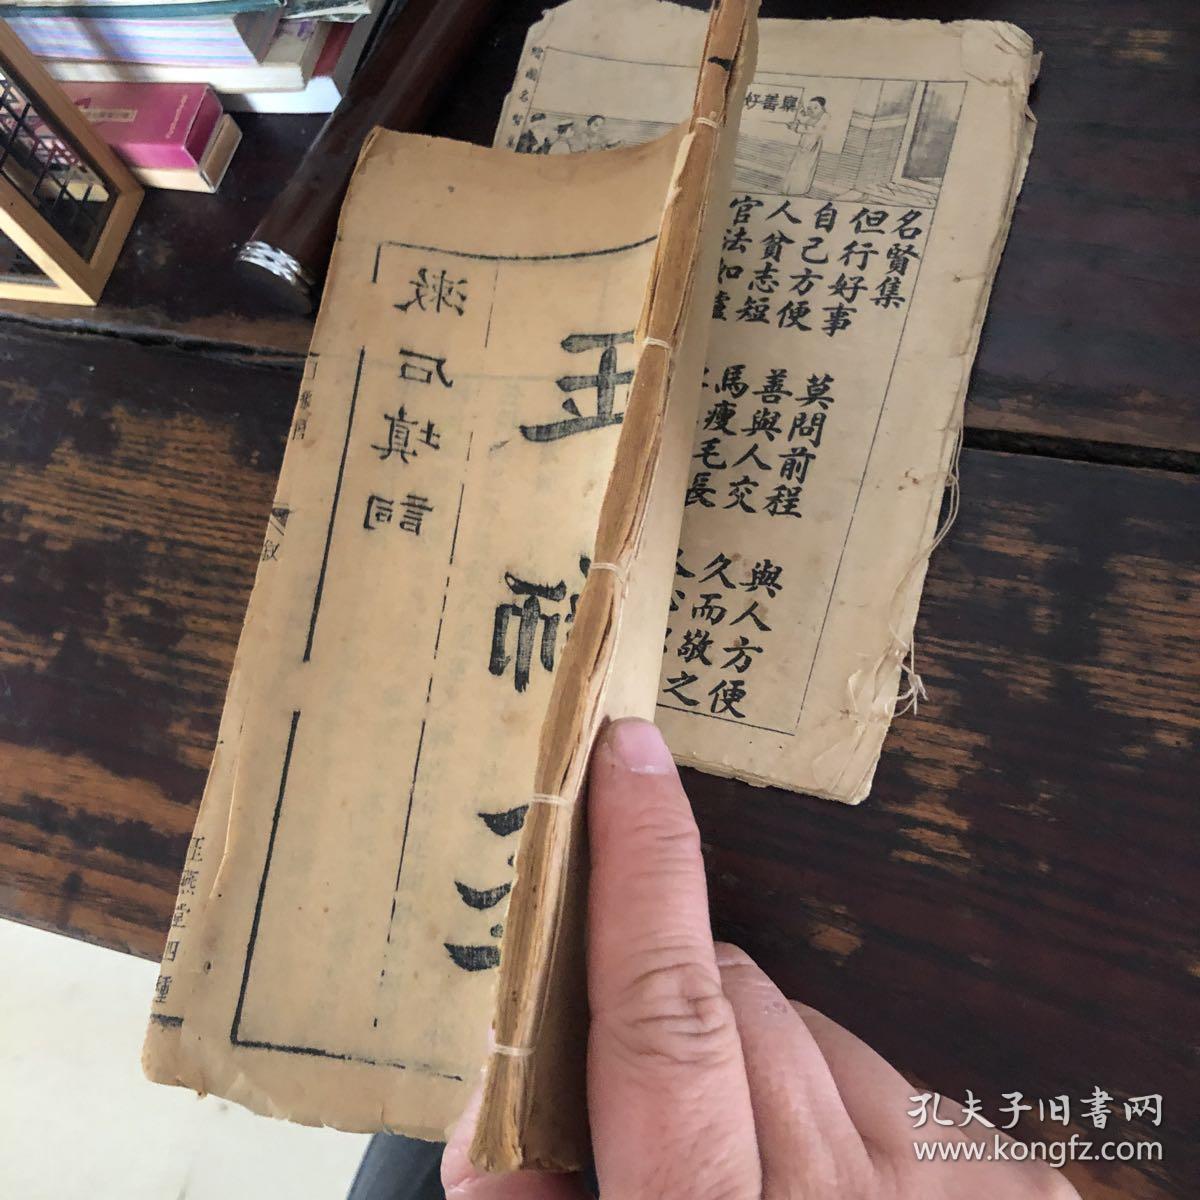 名賢集
但行好事 莫問前程 與人方便
自己方便 善與人交 久而敬之
人貧志短 馬瘦毛長
官法如爐
好善舉
漱石填詞
玉
獅
玉燕堂四種
叙
孔夫子旧書网
www.kongfz.com